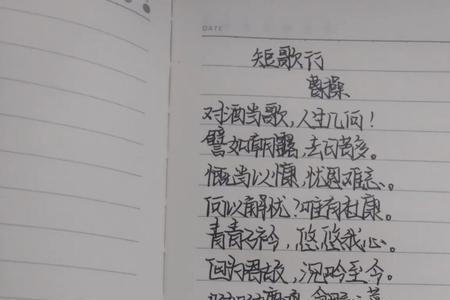 DATE
短歌行
曹操
对酒当歌,人生几何!
譬如朝露,去日苦多。
慨当以慷,忧思难忘。
何以解忧?唯有杜康。
青青子衿,悠悠我心。
但为君故,沉吟至今。